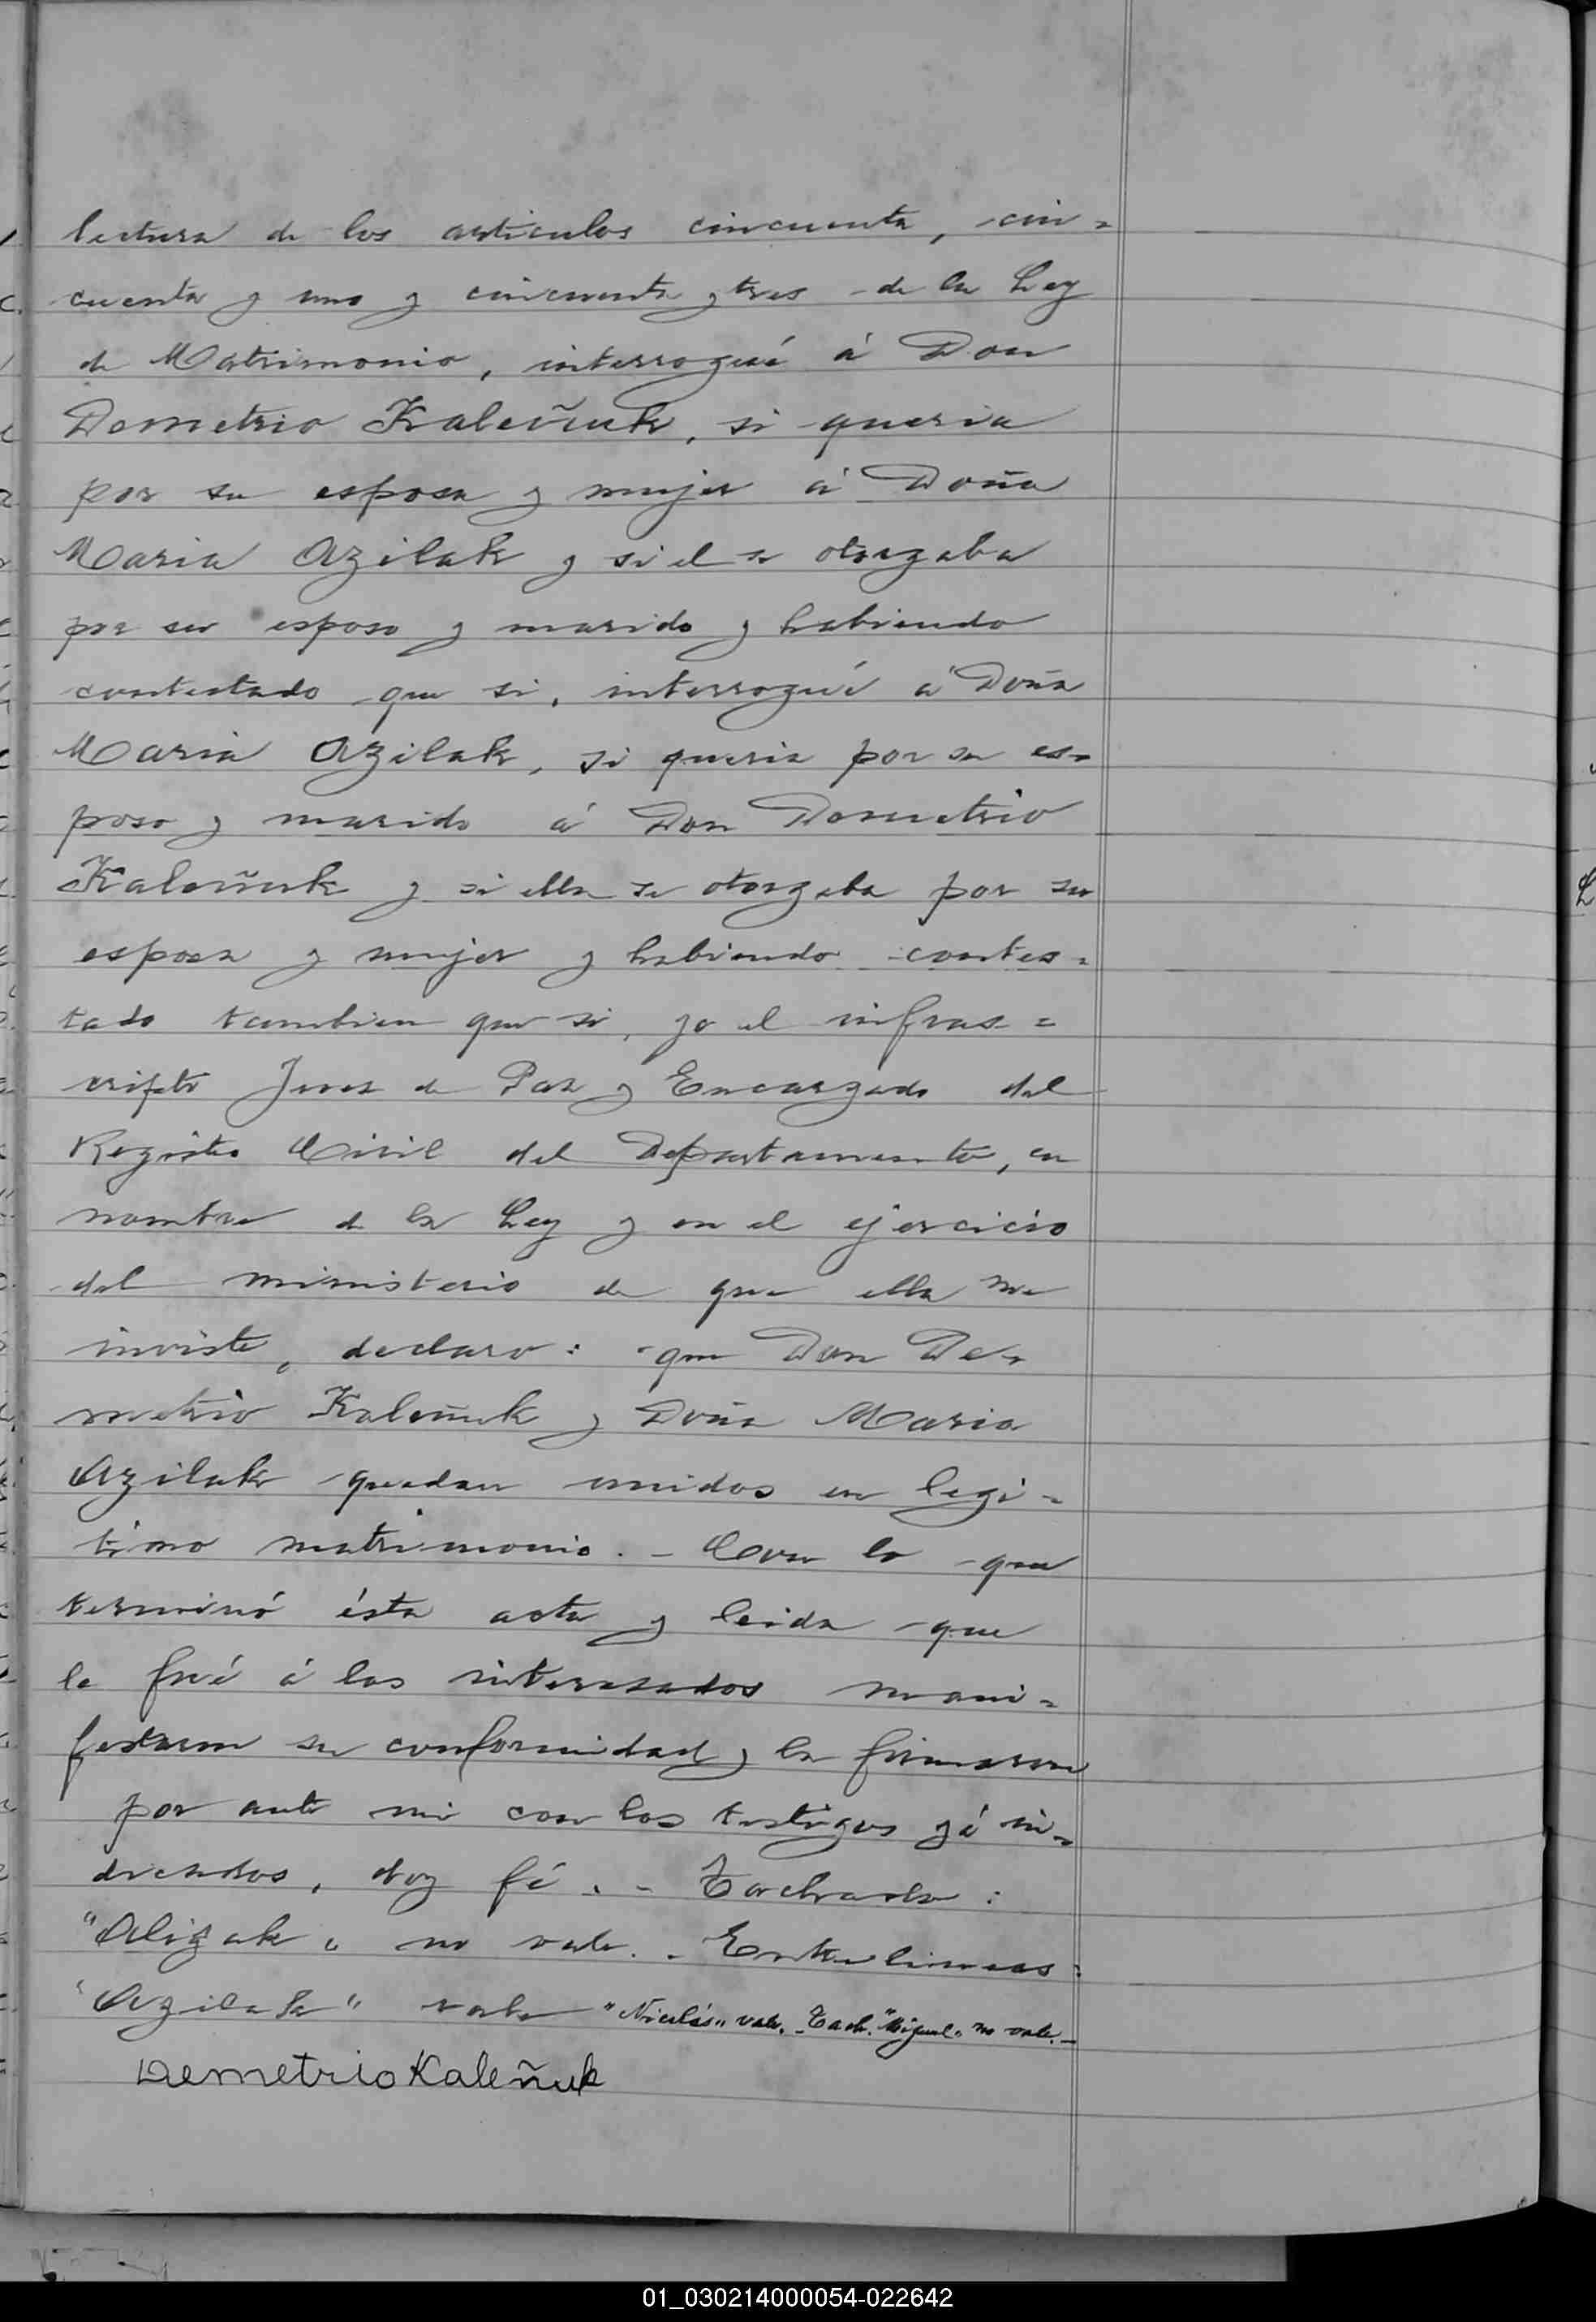 lectura de los articulos cincuenta, cin=
cuenta y uno y cincuenta y tres de la Ley
de Matrimonio, interrogué á Don
Demetrio Kaleñuk, si queria
por su esposa y mujer á Doña
Maria Azilak y si el se otorgaba
por su esposo y marido y habiendo
contestado que si, interrogué á Doña
Maria Azilak, si queria por su es=
poso y marido á Don Demetrio
Kaleñuk y si ella se otorgaba por su
esposa y mujer y habiendo contes=
tado tambien que si, yo el infras=
cripto Juez de Paz y Encargado del
Registro Civil del Departamento, en
nombre de la Ley y en el ejercicio
del ministerio de que ella me
inviste, declaro: que Don De=
metrio Kaleñuk y Doña Maria
Azilak quedan unidos en legi=
timo matrimonio.- Con lo que
terminó ésta acta y leida que
le fué á los interesados mani=
festaron su conformidad y la firmaron
por ante mi con los testigos yá in=
dicados, doy fé.- Tachado:
"Aligak" no vale.- Entre lineas:
"Azilak" vale "Nicolás" vale.- Tach. "Miguel" no vale.-
Demetrio Kaleñuk
01_030214000054-022642